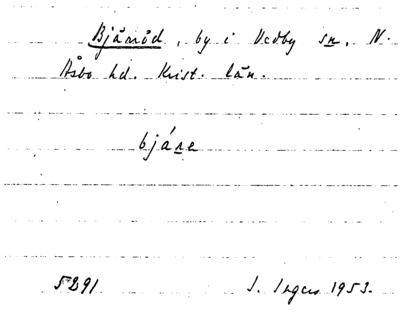 Bjäröd, by i Vedby sn, N.
Åsbo hd. Krist. län.
bjáre
5291 1953.